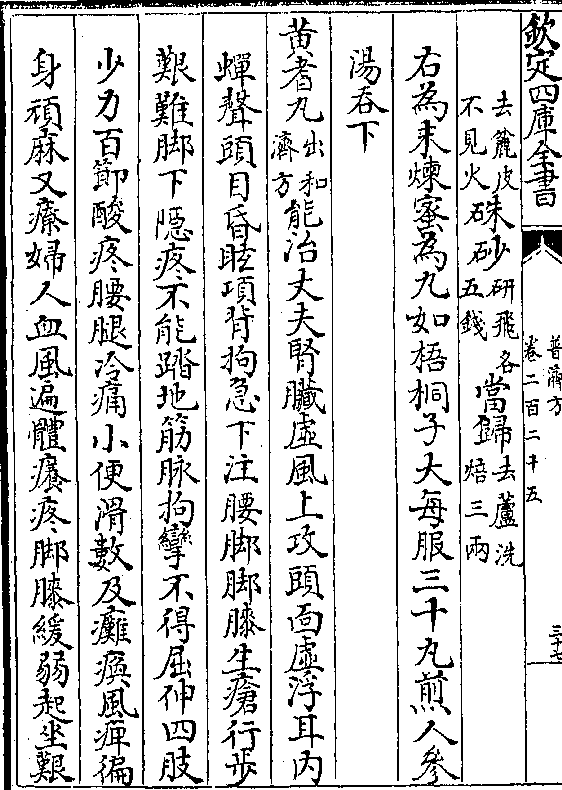 欽定四庫全書
普濟方
卷二百二十五
三十七
去麄皮不見火硃砂研飛各五錢當歸去蘆洗焙三兩
右為末煉蜜為丸如梧桐子大每服三十丸煎人參
湯吞下
黄耆丸出和濟方能治丈夫腎臓虛風上攻頭面虛浮耳内
蟬聲頭目昏眩項背拘急下注腰脚脚膝生瘡行步
艱難脚下隱疼不能踏地筋脉拘攣不得屈伸四肢
少力百節酸疼腰腿冷痛小便滑數及癱瘓風痺徧
身頑麻又療婦人血風遍體癢疼脚膝緩弱起坐艱